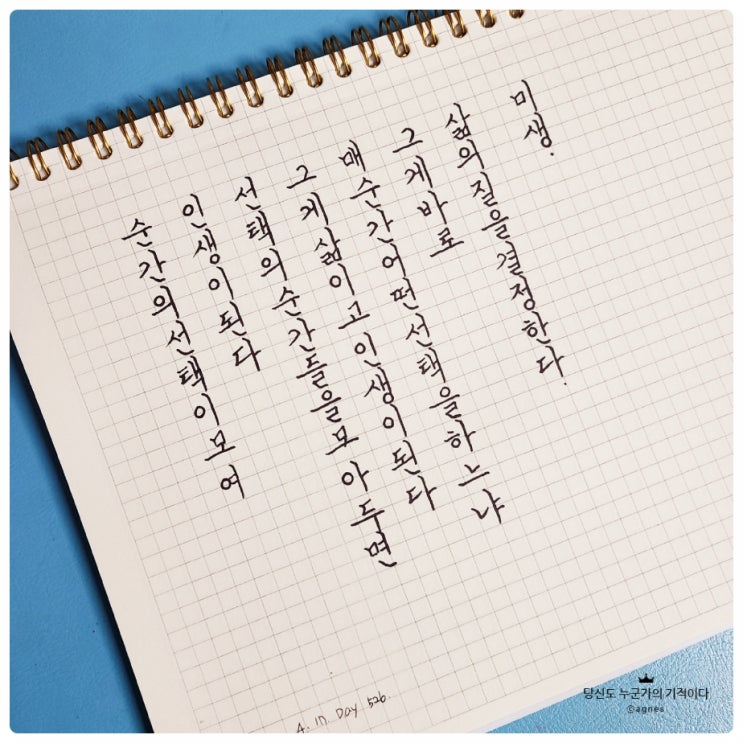 순간의선택이모여
인생이된다
선택의순간들을모아두면
그게삶이고인생이된다
매순간어떤선택을하느냐
그게바로
삶의질을결정한다.
미생.
A. in Day 526.
당신도 누군가의 기적이다
©agnes